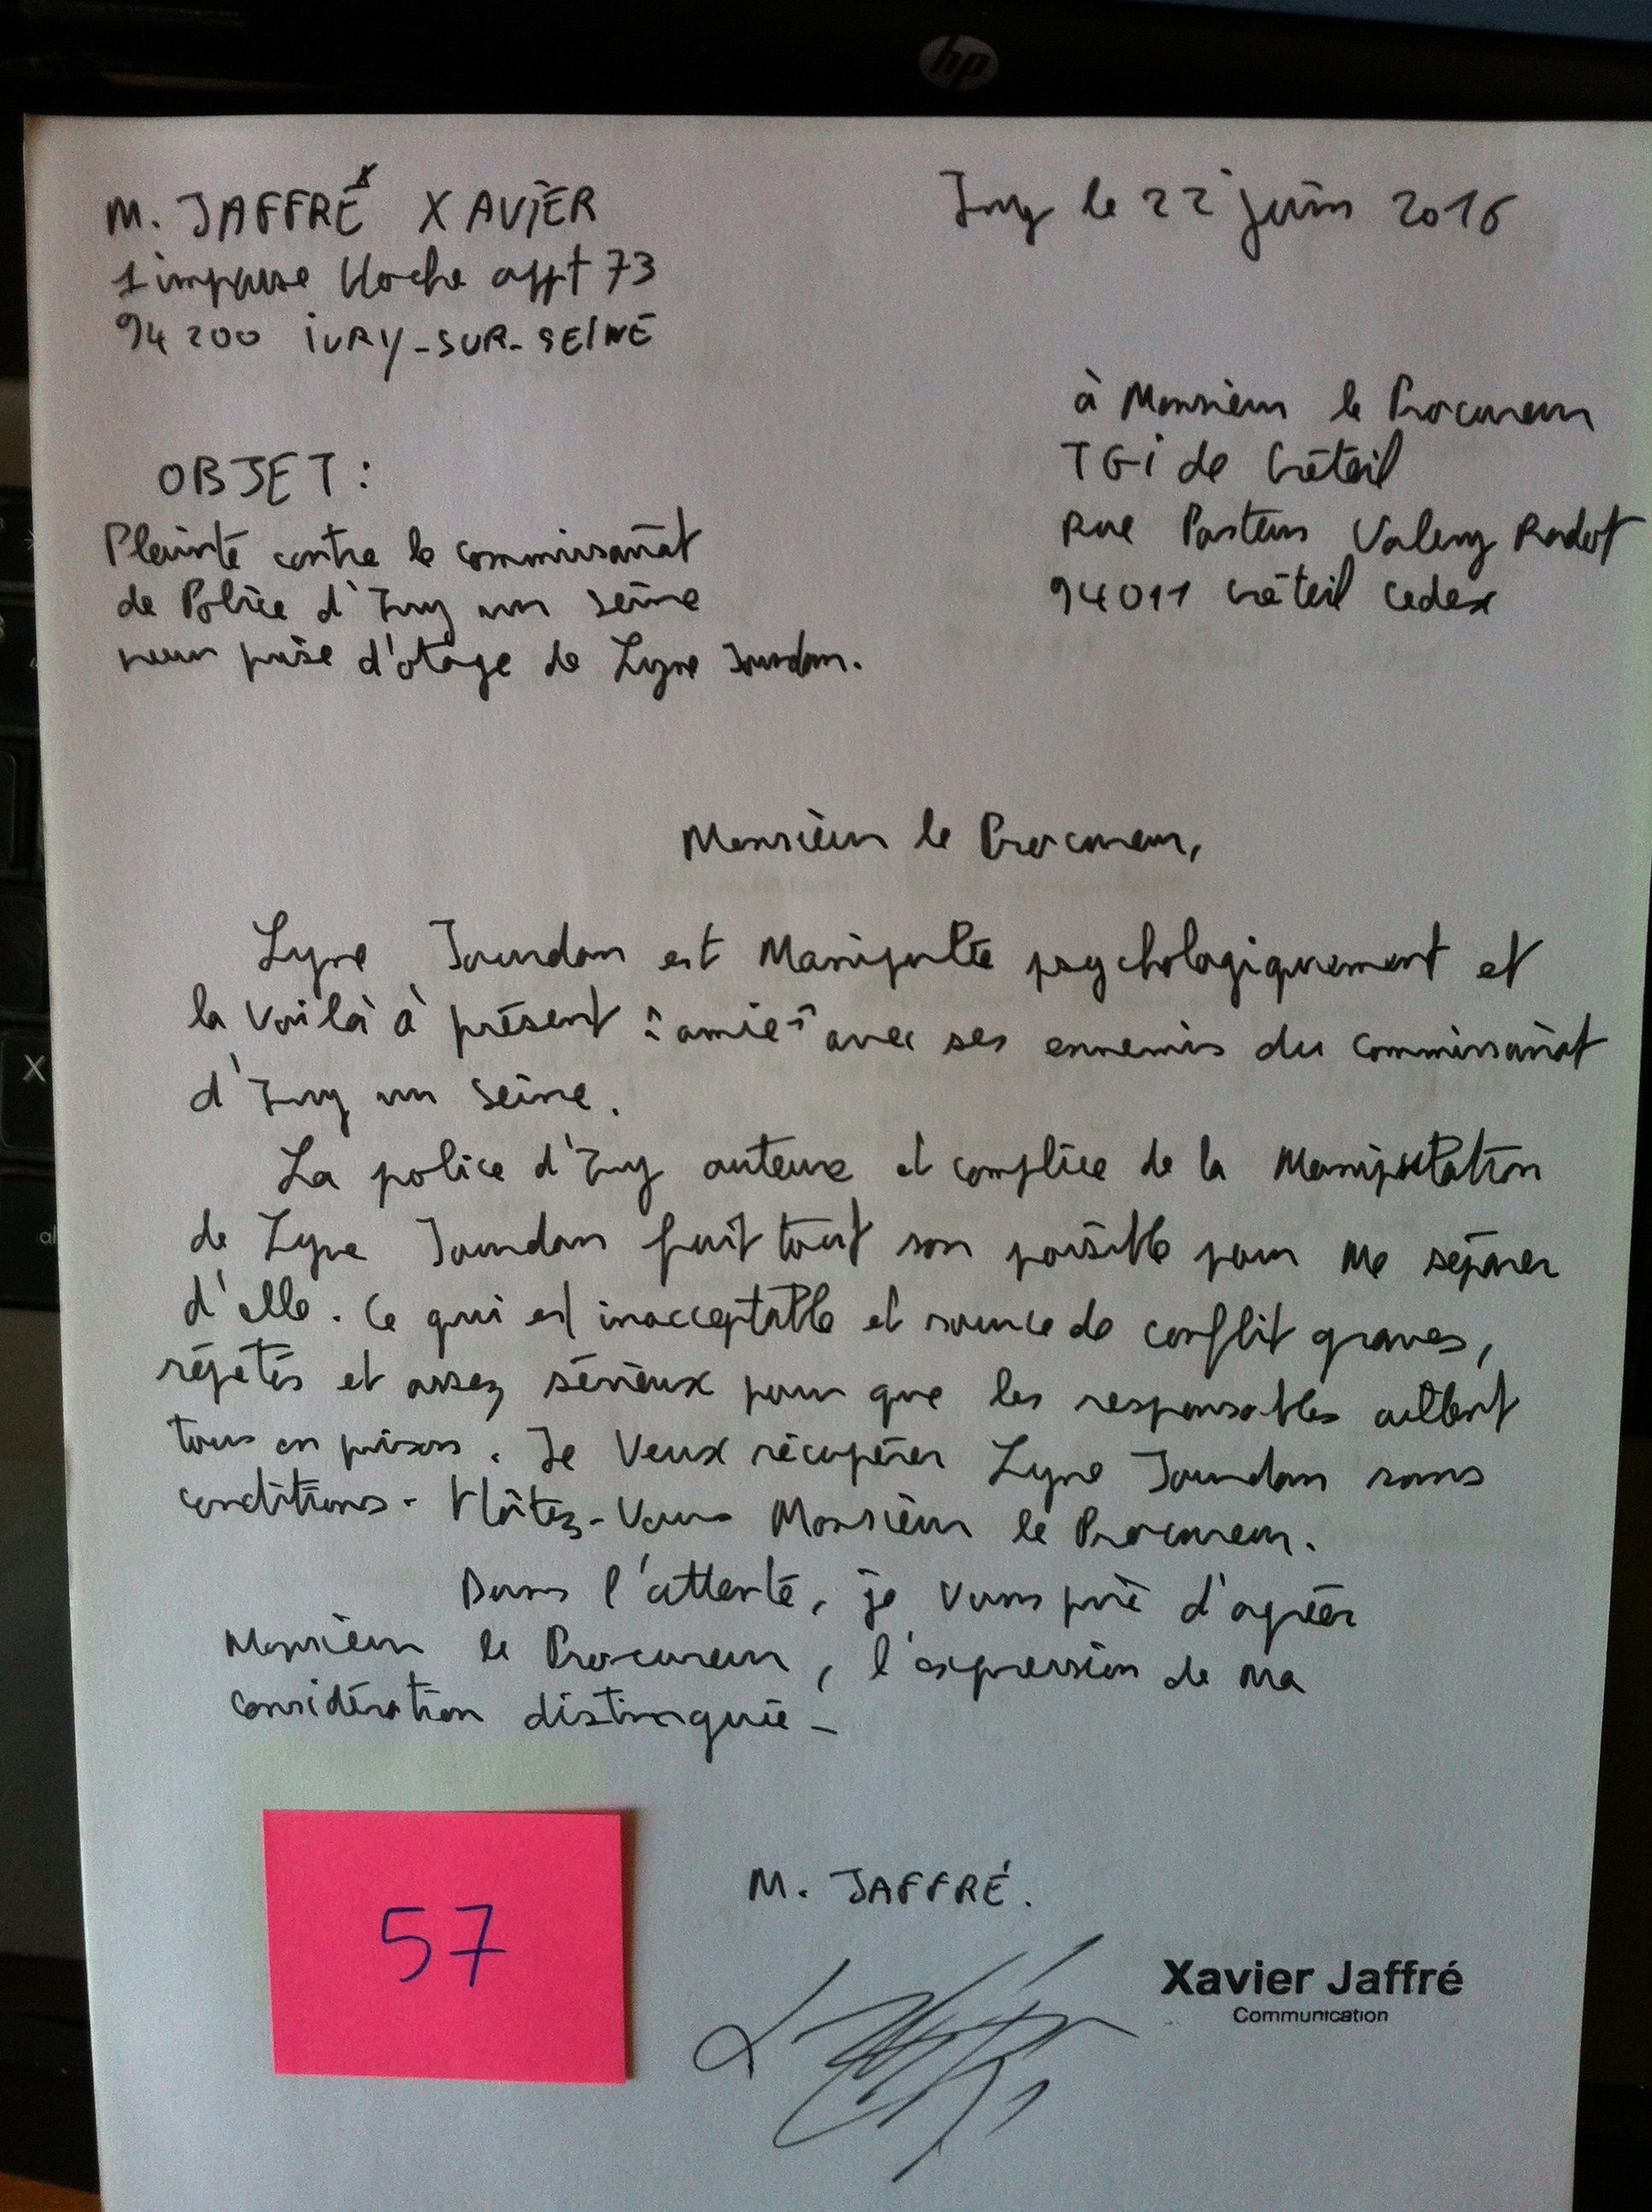 hp
M. JAFFRÉ XAVIER
1 impasse Hoche appt 73
94200 IVRY-SUR-SEINE
Ivry le 22 juin 2016
à Monsieur le Procureur
TGI de Créteil
Rue Pasteur Valery Radot
94011 Créteil Cedex
OBJET :
Plainte contre le commissariat
de Police d'Ivry sur Seine
pour prise d'otage de Lyne Jourdan.
Monsieur le Procureur,
Lyne Jourdan est Manipulée psychologiquement et
la voilà à présent "amie" avec ses ennemis du commissariat
d'Ivry sur Seine.
La police d'Ivry auteure et complice de la Manipulation
de Lyne Jourdan fait tout son possible pour me séparer
d'elle. Ce qui est inacceptable et source de conflit graves,
répétés et assez sérieux pour que les responsables aillent
tous en prison. Je veux récupérer Lyne Jourdan sans
conditions. Hâtez-vous Monsieur le Procureur.
Dans l'attente, je vous prie d'agréer
Monsieur le Procureur, l'expression de ma
considération distinguée -
M. JAFFRÉ.
57
Xavier Jaffré
Communication